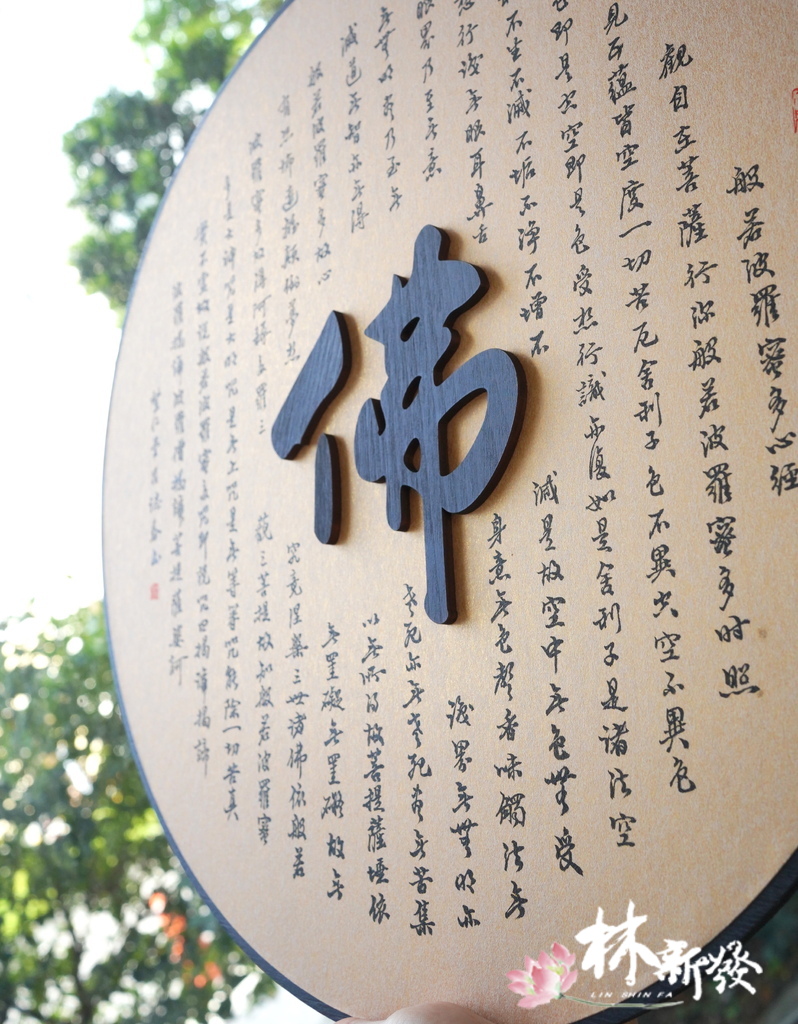 般若波羅蜜多心經
觀自在菩薩行深般若波羅蜜多時照
見五蘊皆空度一切苦厄舍利子色不異空空不異色
色即是空空即是色受想行識亦復如是舍利子是諸法空
不生不滅不垢不淨不增不
減是故空中無色無受
想行識無眼耳鼻舌
身意無色聲香味觸法無
眼界乃至無意
識界無無明亦
無無明盡乃至無
老死亦無老死盡無苦集
滅道無智亦無得
以無所得故菩提薩埵依
般若波羅蜜多故心
無罣礙無罣礙故無
有恐怖遠離顛倒夢想
究竟涅槃三世諸佛依般若
波羅蜜多故得阿耨多羅三
藐三菩提故知般若波羅蜜
多是大神咒是大明咒是無上咒是無等等咒能除一切苦真
實不虛故說般若波羅蜜多咒即說咒曰揭諦揭諦
波羅揭諦波羅僧揭諦菩提薩婆訶
佛
林新發
LIN SHIN FA